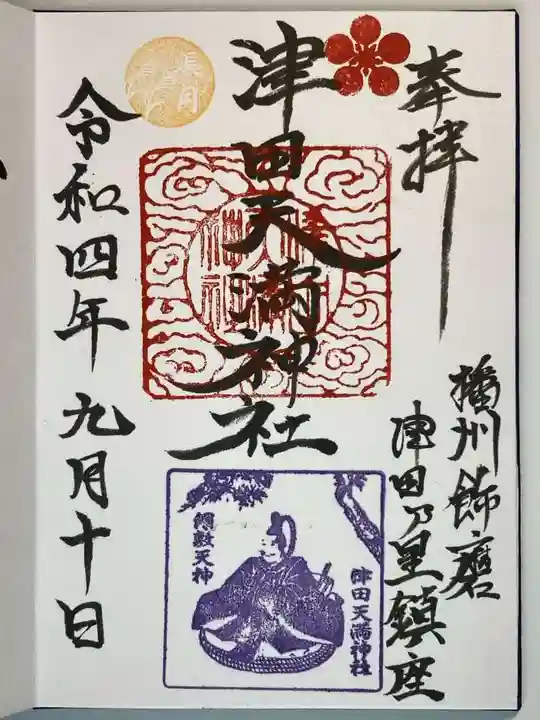 奉拝
播州飾磨
津田乃里鎮座
津田天満神社
令和四年九月十日
長月
綱敷天神
津田天満神社